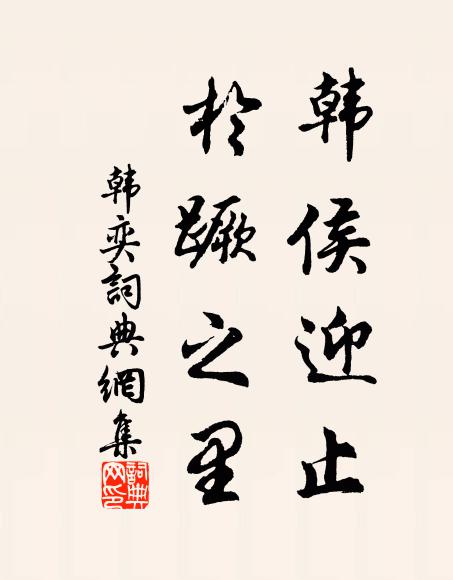 韩侯迎止
於蹶之里
韩奕詞典網集
詞典網印